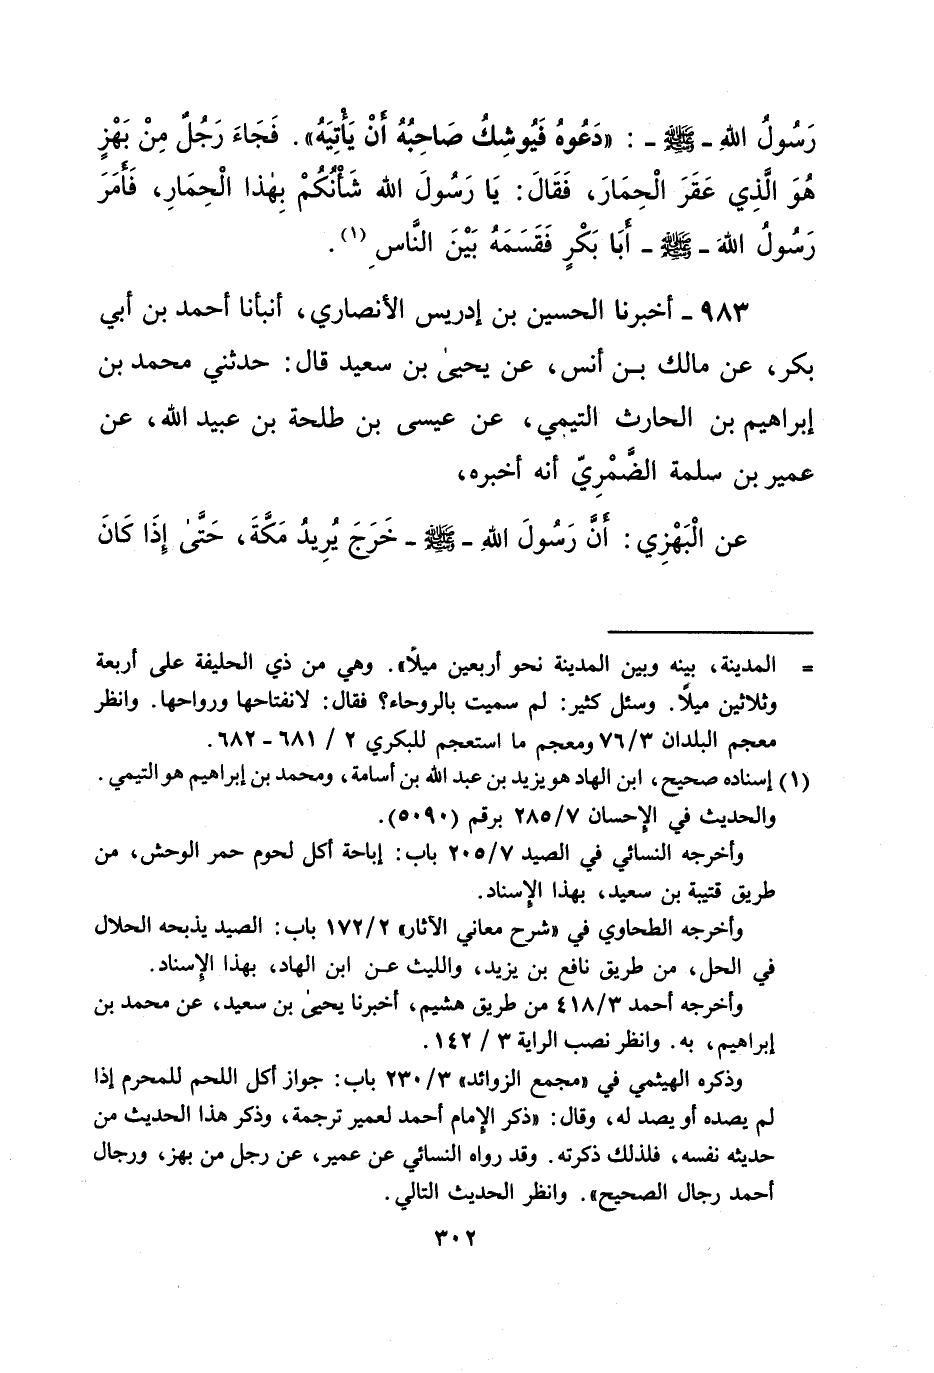 رَسُولُ اللهِ ـ ﷺ ـ : «دَعُوهُ فَيُوشِكُ صَاحِبُهُ أَنْ يَأْتِيَهُ». فَجَاءَ رَجُلٌ مِنْ بَهْزٍ
هُوَ الَّذِي عَقَرَ الْحِمَارَ، فَقَالَ: يَا رَسُولَ الله شَأْنُكُمْ بِهٰذا الْحِمَارِ، فَأَمَرَ
رَسُولُ اللهَ ـ ﷺ ـ أَبَا بَكْرٍ فَقَسَمَهُ بَيْنَ النَّاسِ (١).
٩٨٣ ـ أخبرنا الحسين بن إدريس الأنصاري، أنبأنا أحمد بن أبي
بكر، عن مالك بـن أنس، عن يحيىٰ بن سعيد قال: حدثني محمد بن
إبراهيم بن الحارث التيمي، عن عيسى بن طلحة بن عبيد الله، عن
عمير بن سلمة الضَّمْرِيّ أنه أخبره،
عن الْبَهْزِي: أَنَّ رَسُولَ اللهِ ـ ﷺ ـ خَرَجَ يُرِيدُ مَكَّةَ، حَتَّىٰ إِذَا كَانَ
= المدينة، بينه وبين المدينة نحو أربعين ميلاً». وهي من ذي الحليفة على أربعة
وثلاثين ميلاً. وسئل كثير: لم سميت بالروحاء؟ فقال: لانفتاحها ورواحها. وانظر
معجم البلدان ٧٦/٣ ومعجم ما استعجم للبكري ٢ / ٦٨١ - ٦٨٢.
(١) إسناده صحيح، ابن الهاد هو يزيد بن عبد الله بن أسامة، ومحمد بن إبراهيم هو التيمي.
والحديث في الإحسان ٢٨٥/٧ برقم (٥٠٩٠).
وأخرجه النسائي في الصيد ٢٠٥/٧ باب: إباحة أكل لحوم حمر الوحش، من
طريق قتيبة بن سعيد، بهذا الإسناد.
وأخرجه الطحاوي في «شرح معاني الآثار» ١٧٢/٢ باب: الصيد يذبحه الحلال
في الحل، من طريق نافع بن يزيد، والليث عـن ابن الهاد، بهذا الإسناد.
وأخرجه أحمد ٤١٨/٣ من طريق هشيم، أخبرنا يحيىٰ بن سعيد، عن محمد بن
إبراهيم، به. وانظر نصب الراية ٣ / ١٤٢.
وذكره الهيثمي في «مجمع الزوائد» ٢٣٠/٣ باب: جواز أكل اللحم للمحرم إذا
لم يصده أو يصد له، وقال: «ذكر الإمام أحمد لعمير ترجمة، وذكر هذا الحديث من
حديثه نفسه، فلذلك ذكرته. وقد رواه النسائي عن عمير، عن رجل من بهز، ورجال
أحمد رجال الصحيح». وانظر الحديث التالي.
٣٠٢